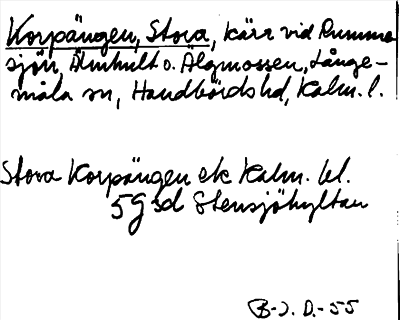 Korpängen, Stora, kärr vid Rumme-
sjön, Älmhult o. Älgmossen, Långe-
måla sn, Handbörds hd, Kalm. l.
Stora Korpängen ek Kalm. bl.
5 G sd Stensjöhyltan
B-J. D.-55